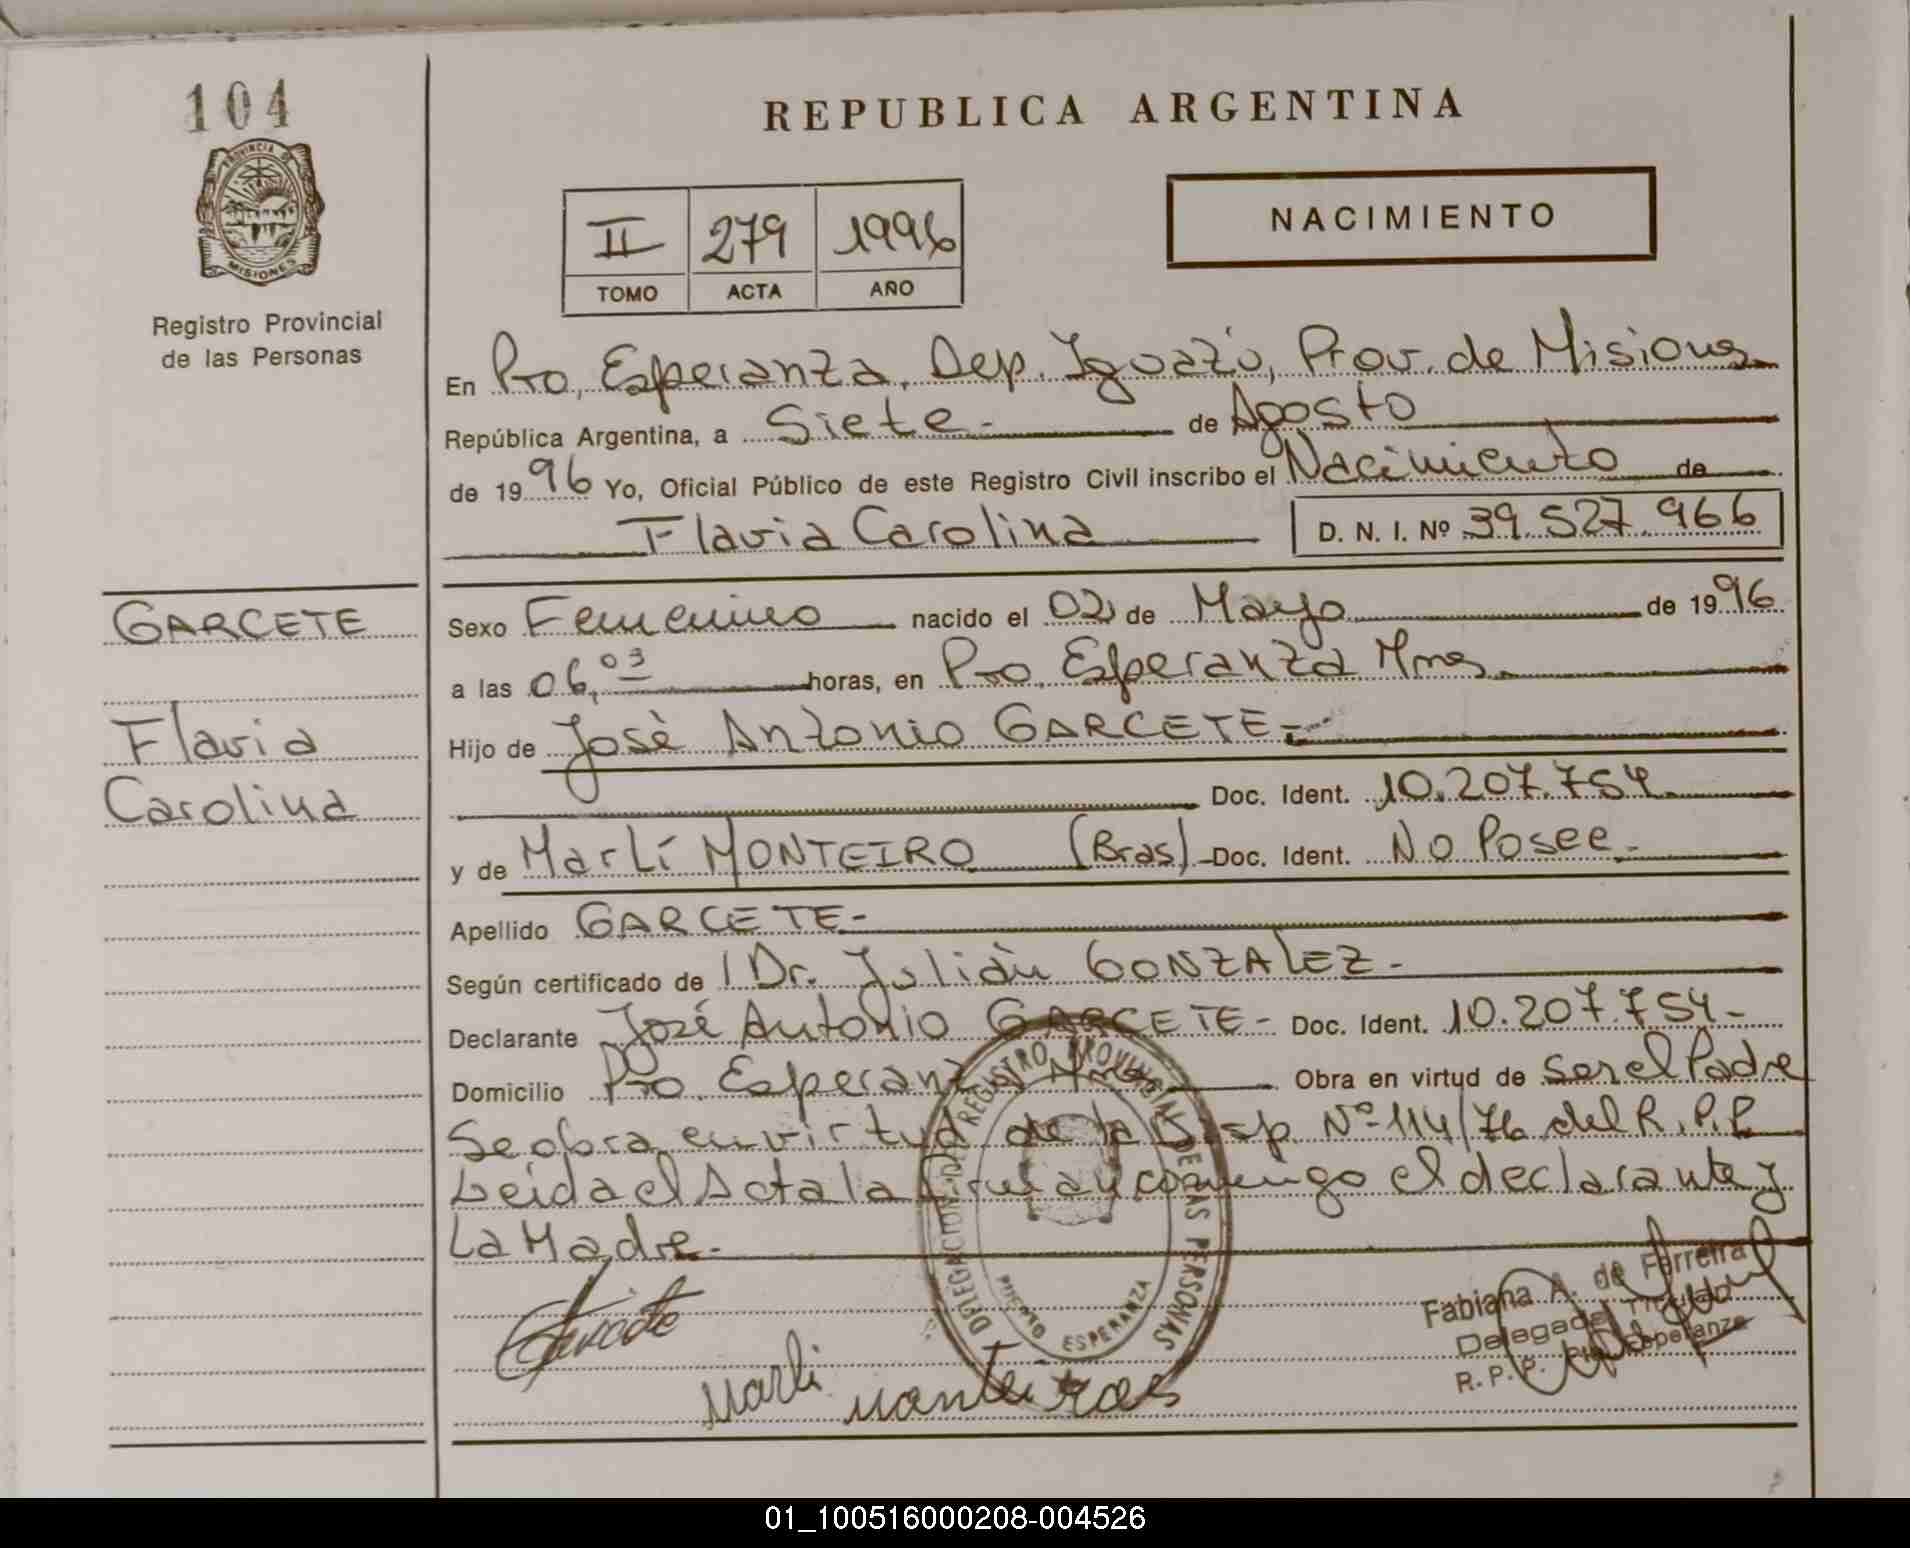 104
PROVINCIA DE
MISIONES
Registro Provincial
de las Personas
GARCETE
Flavia
Carolina
REPUBLICA ARGENTINA
II 279 1996
TOMO ACTA AÑO
NACIMIENTO
En Pto, Esperanza, Dep. Iguazú, Prov. de Misiones
República Argentina, a Siete- de Agosto
de 1996 Yo, Oficial Público de este Registro Civil inscribo el Nacimiento de
Flavia Carolina D. N. I. Nº 39.527.966
Sexo Femenino nacido el 02 de Mayo de 1996
a las 06,03 horas, en Pto. Esperanza Mnes.
Hijo de José Antonio GARCETE-
Doc. Ident. 10.207.754.
y de Marlí MONTEIRO (Bras) Doc. Ident. No Posee.-
Apellido GARCETE-
Según certificado de Dr. Julián GONZALEZ-
Declarante José Antonio GARCETE- Doc. Ident. 10.207.754-
Domicilio Pto. Esperanza Mnes Obra en virtud de Ser el Padre
Se obra en virtud de la Disp. Nº 114/76 del R.P.P.
Leida el Acta la firman conmigo el declarante y
La Madre.-
DELEGACION DEL REGISTRO PROVINCIAL DE LAS PERSONAS
PUERTO ESPERANZA
Garcete
Marli Monteiro
Fabiana A. de Ferreira
Delegada Titular
R. P. P. Pto. Esperanza
01_100516000208-004526